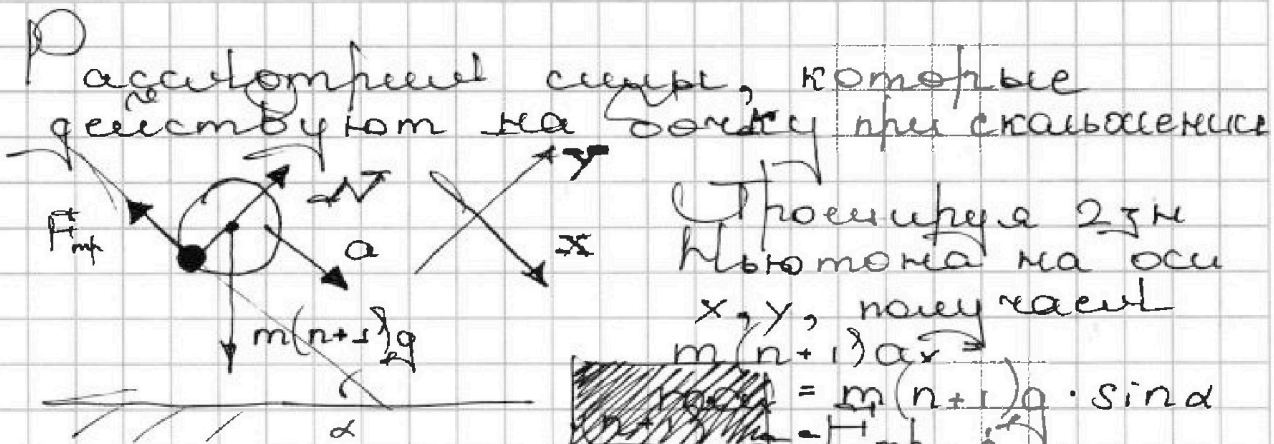 Рассмотрим силы, которые
действуют на бочку при скольжении
N
y
Fтр
a
x
m(n+1)g
α
Проецируя 2 зн
Ньютона на оси
x, y, получаем
m(n+1)ax =
= m(n+1)g · sinα